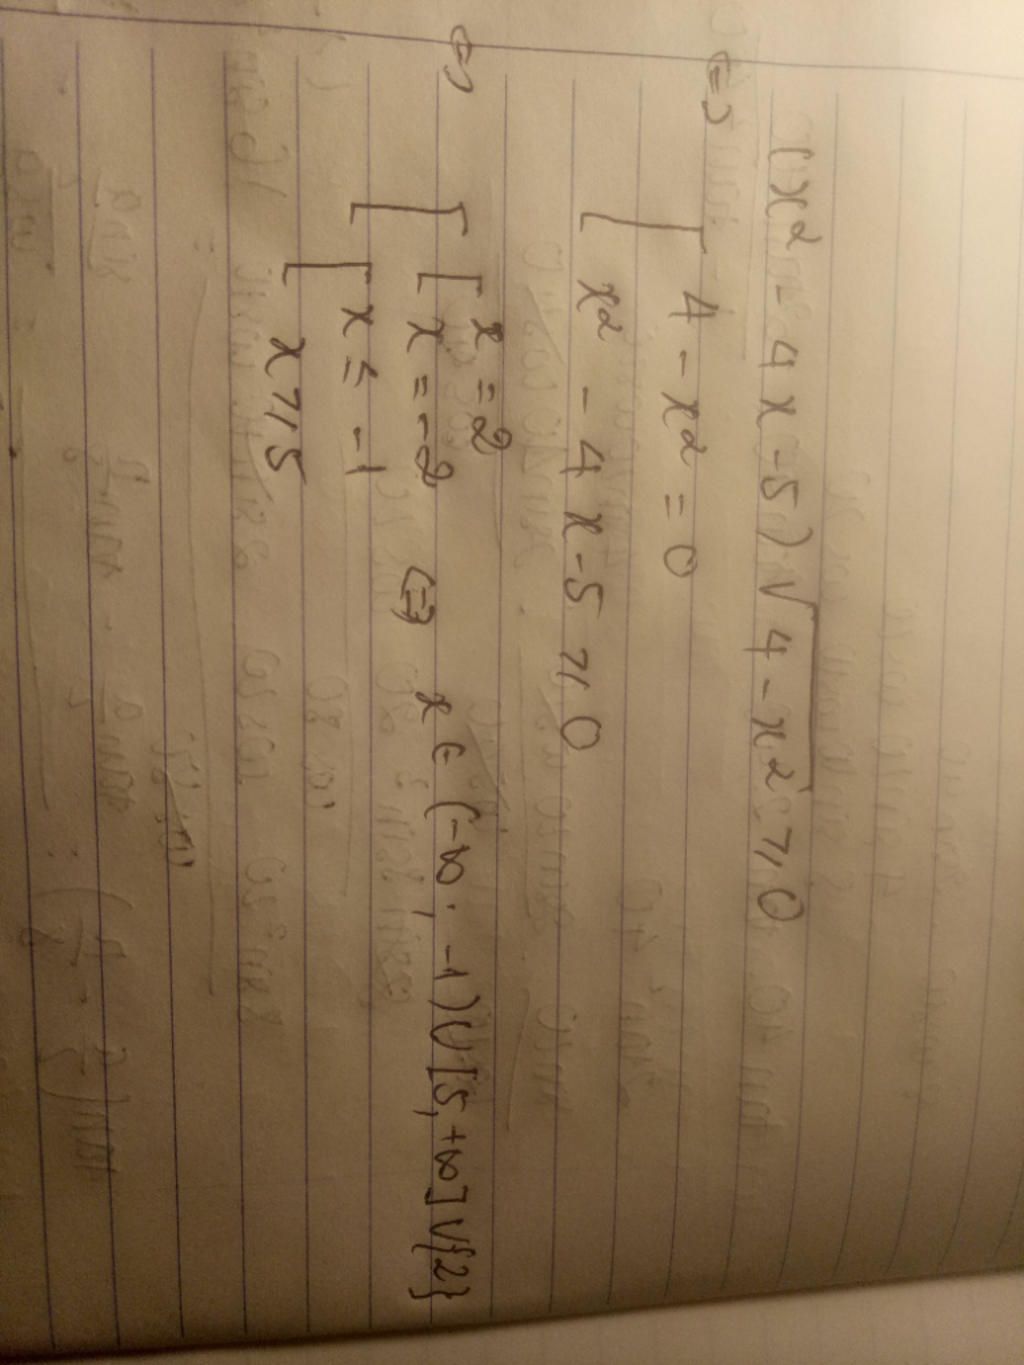 (x² - 4x - 5)√4 - x² ⩾ 0
⇔ [ 4 - x² = 0
x² - 4x - 5 ⩾ 0
⇔ [ [ x = 2
x = -2 ⇔ x ∈ (-∞; -1) ∪ [5; +∞] ∪ {2}
[ x ≤ -1
x ⩾ 5